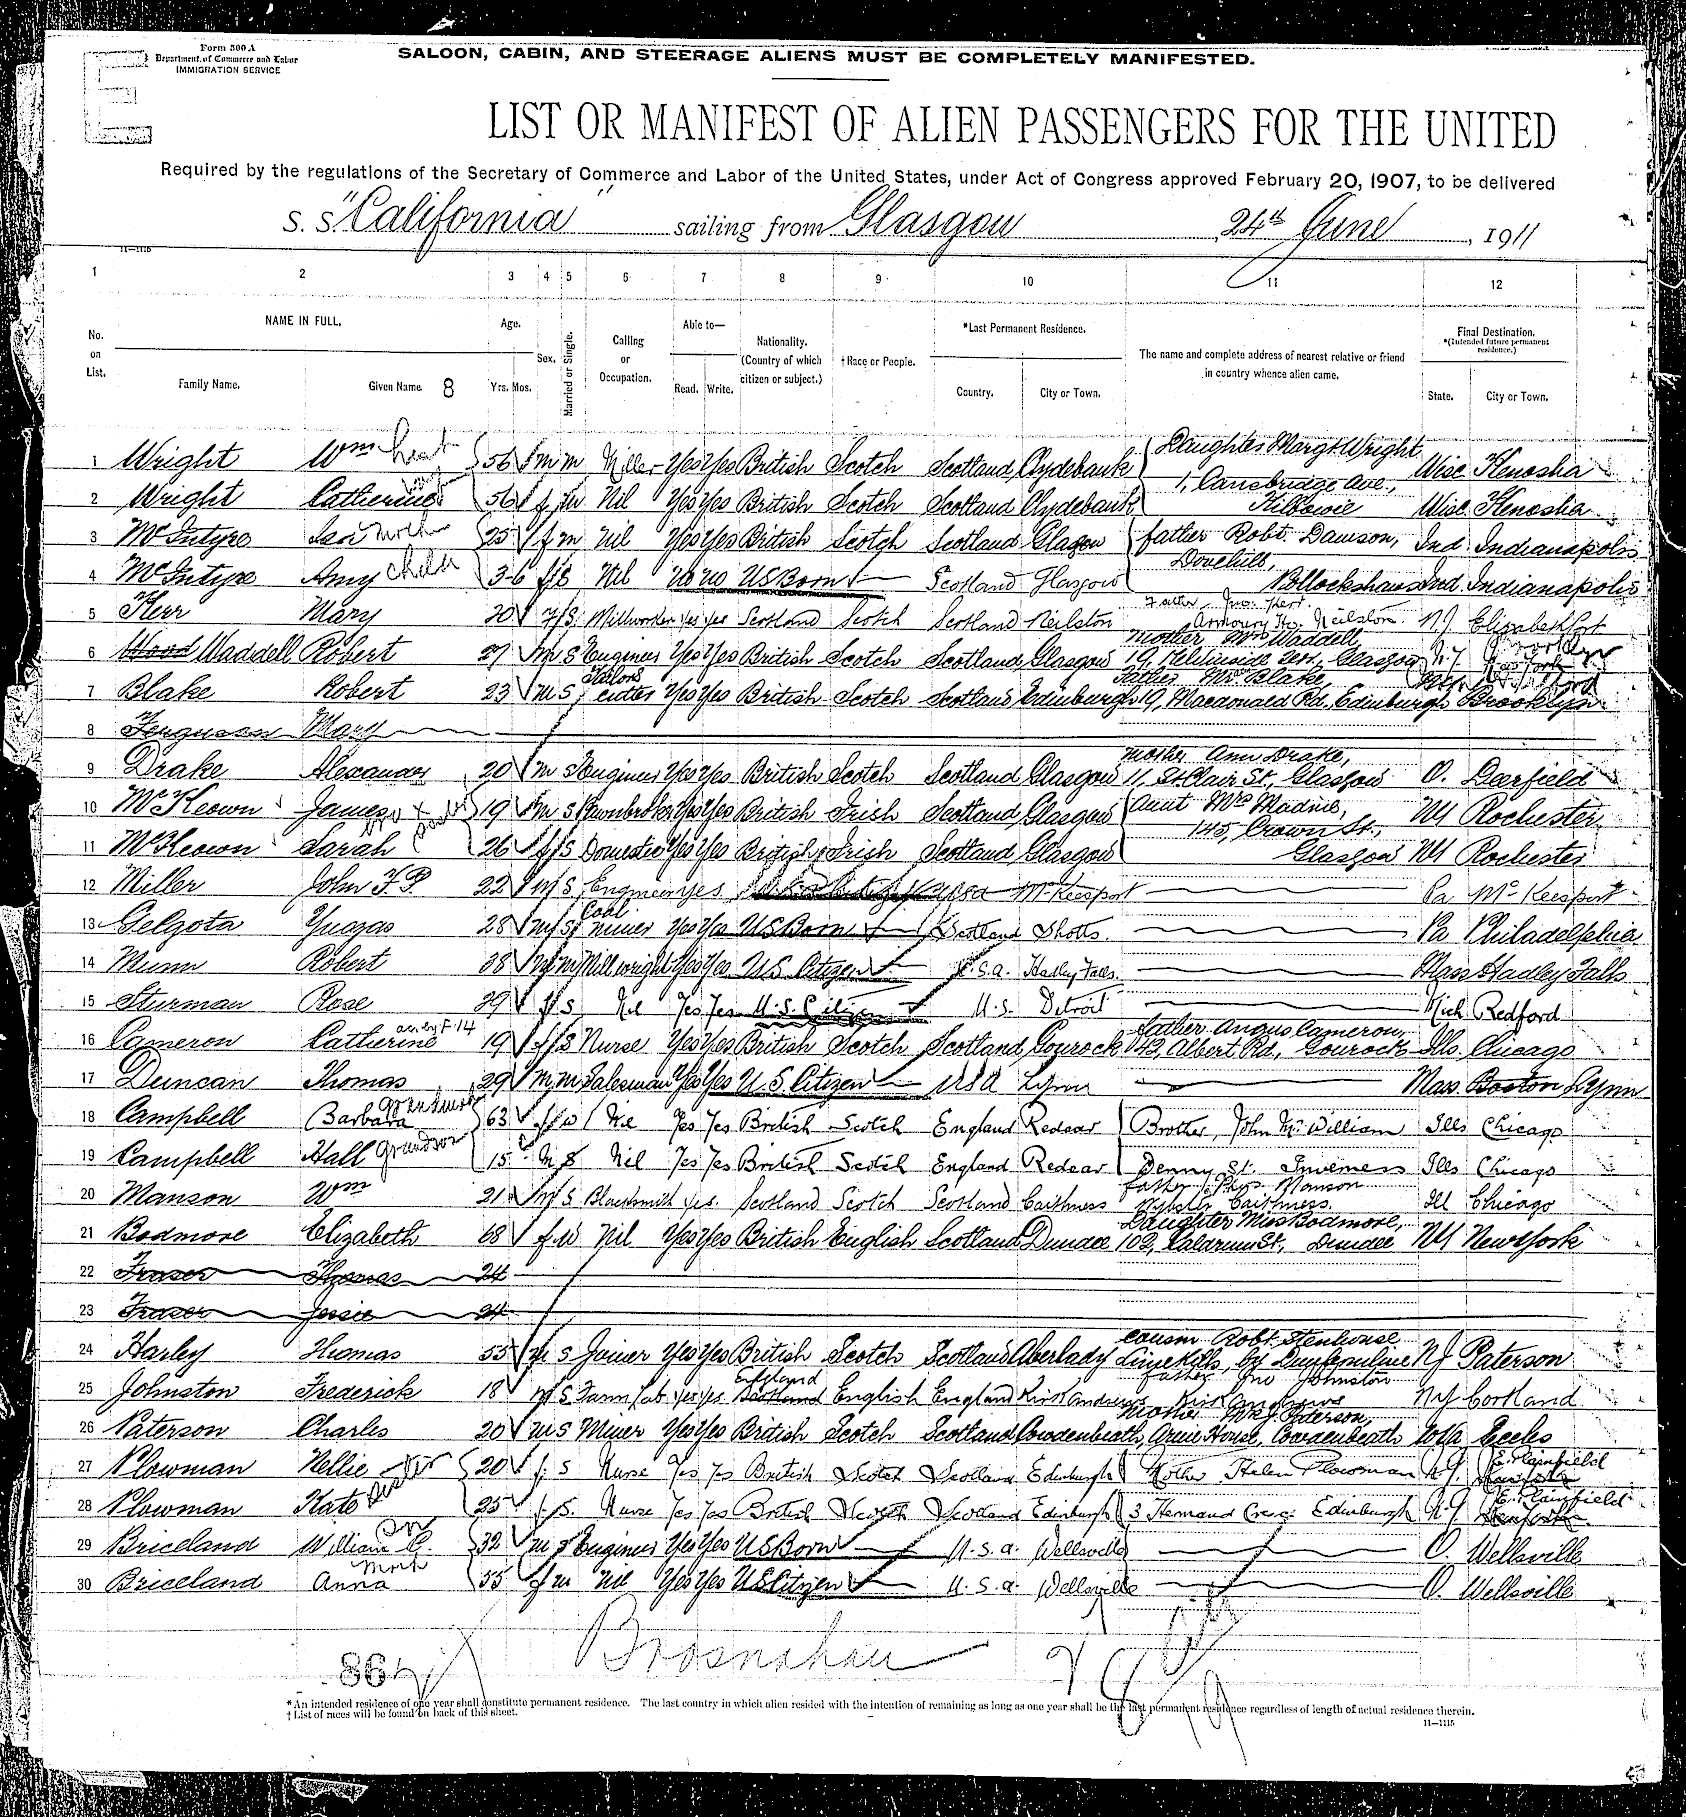 Form 500 A
Department of Commerce and Labor
IMMIGRATION SERVICE
SALOON, CABIN, AND STEERAGE ALIENS MUST BE COMPLETELY MANIFESTED.
LIST OR MANIFEST OF ALIEN PASSENGERS FOR THE UNITED
Required by the regulations of the Secretary of Commerce and Labor of the United States, under Act of Congress approved February 20, 1907, to be delivered
S. S. "California" sailing from Glasgow, 24th June, 1911
1 2 3 4 5 6 7 8 9 10 11 12
No. on List. NAME IN FULL. Family Name. Given Name. 8 Age. Yrs. Mos. Sex. Married or Single. Calling or Occupation. Able to— Read. Write. Nationality. (Country of which citizen or subject.) †Race or People. *Last Permanent Residence. Country. City or Town. The name and complete address of nearest relative or friend in country whence alien came. Final Destination. *(Intended future permanent residence.) State. City or Town.
1 Wright Wm 56 m m Miller Yes Yes British Scotch Scotland Clydebank Daughter Margt Wright Wisc Kenosha
2 Wright Catherine 56 f m Nil Yes Yes British Scotch Scotland Clydebank 1, Cansbridge Ave., Kilbowie Wisc. Kenosha
3 McIntyre Isa mother 25 f m Nil Yes Yes British Scotch Scotland Glasgow father Robt. Dawson, Ind. Indianapolis
4 McIntyre Amy child 3-6 f s Nil No No US Born Scotland Glasgow Dovehill, Pollockshaws Ind. Indianapolis
5 Kerr Mary 20 f S. Millworker yes yes Scotland Scotch Scotland Neilston Father Jno. Kerr. Armoury Ho. Neilston. NJ Elizabethport
6 Wood Waddell Robert 27 m S Engineer Yes Yes British Scotch Scotland Glasgow Mother Mrs Waddell, 19, Terr., Glasgow N.Y. Brooklyn
7 Blake Robert 23 m S Tailors cutter Yes Yes British Scotch Scotland Edinburgh father Mr Blake, 19, Macdonald Rd., Edinburgh Brooklyn
8 Ferguson Mary
9 Drake Alexander 20 m S Engineer Yes Yes British Scotch Scotland Glasgow mother Ann Drake, 11, St Clair St., Glasgow O. Darfield
10 McKeown James 19 m S Pawnbroker Yes Yes British Irish Scotland Glasgow aunt Mrs Madine, NY Rochester
11 McKeown Sarah 26 f S Domestic Yes Yes British Irish Scotland Glasgow 145, Crown St., Glasgow NY Rochester
12 Miller John F. P. 22 m S Engineer yes USA McKeesport Pa McKeesport
13 Gelgota Yuozas 28 m S Coal miner Yes Yes US Born Scotland Shotts Pa Philadelphia
14 Munn Robert 38 m m Millwright Yes Yes U.S. Citizen U.S.A. Hadley Falls Mass Hadley Falls
15 Sturman Rose 29 f S Nil Yes Yes U.S. Citizen U.S. Detroit Mich Redford
16 Cameron Catherine 19 f S Nurse Yes Yes British Scotch Scotland Gourock father Angus Cameron, 42, Albert Rd., Gourock Ills. Chicago
17 Duncan Thomas 29 m m Salesman Yes Yes U.S. Citizen USA Lynn Mass. Boston Lynn
18 Campbell Barbara Grandmother 63 f w Nil Yes Yes British Scotch England Redcar Brother, John McWilliam Ills Chicago
19 Campbell Hall Grandson 15 m S Nil Yes Yes British Scotch England Redcar Denny St. Inverness Ills Chicago
20 Manson Wm 21 m S Blacksmith yes. Scotland Scotch Scotland Caithness father Manson Lybster Caithness. Ill Chicago
21 Bodmore Elizabeth 68 f w Nil Yes Yes British English Scotland Dundee Daughter Miss Bodmore, 102, St., Dundee NY New York
22 Fraser Thomas 24
23 Fraser Jessie 24
24 Harley Thomas 55 m S Joiner Yes Yes British Scotch Scotland Aberlady Cousin Robt Stenhouse Limekilns, by Dunfermline NJ Paterson
25 Johnston Frederick 18 m S Farm Lab yes yes England Scotland English England Kirkandrews father Jno Johnston Kirkandrews NY Cortland
26 Paterson Charles 20 m S Miner Yes Yes British Scotch Scotland Cowdenbeath mother Mrs J. Paterson, House, Cowdenbeath WVa Eccles
27 Plowman Nellie 20 f S Nurse Yes Yes British Scotch Scotland Edinburgh Mother Helen Plowman N.J. E. Plainfield
28 Plowman Kate 25 f S. Nurse Yes Yes British Scotch Scotland Edinburgh 3 Hermand Cresc. Edinburgh N.J. E. Plainfield
29 Briceland William C. son 32 m S Engineer Yes Yes US Born U.S.A. Wellsville O. Wellsville
30 Briceland Anna moth 55 f m Nil Yes Yes US Citizen U.S.A. Wellsville O. Wellsville
Brosnahan
86
*An intended residence of one year shall constitute permanent residence. The last country in which alien resided with the intention of remaining as long as one year shall be the last permanent residence regardless of length of actual residence therein.
†List of races will be found on back of this sheet.
11—1115